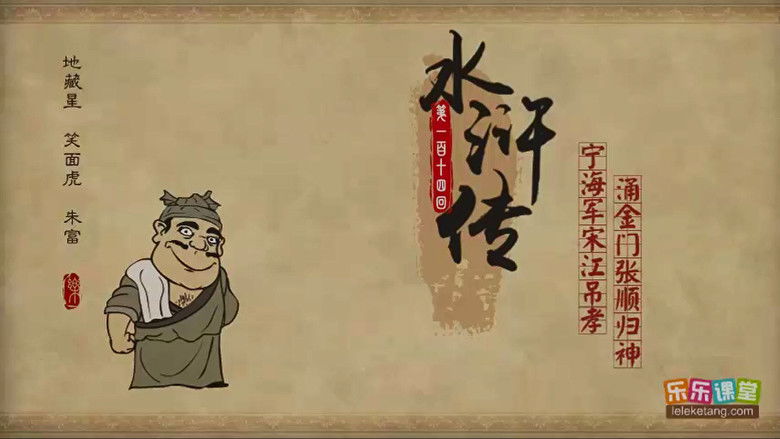 水浒传
第一百十四回
宁海军宋江吊孝
涌金门张顺归神
地藏星 笑面虎 朱富
乐乐课堂
leleketang.com